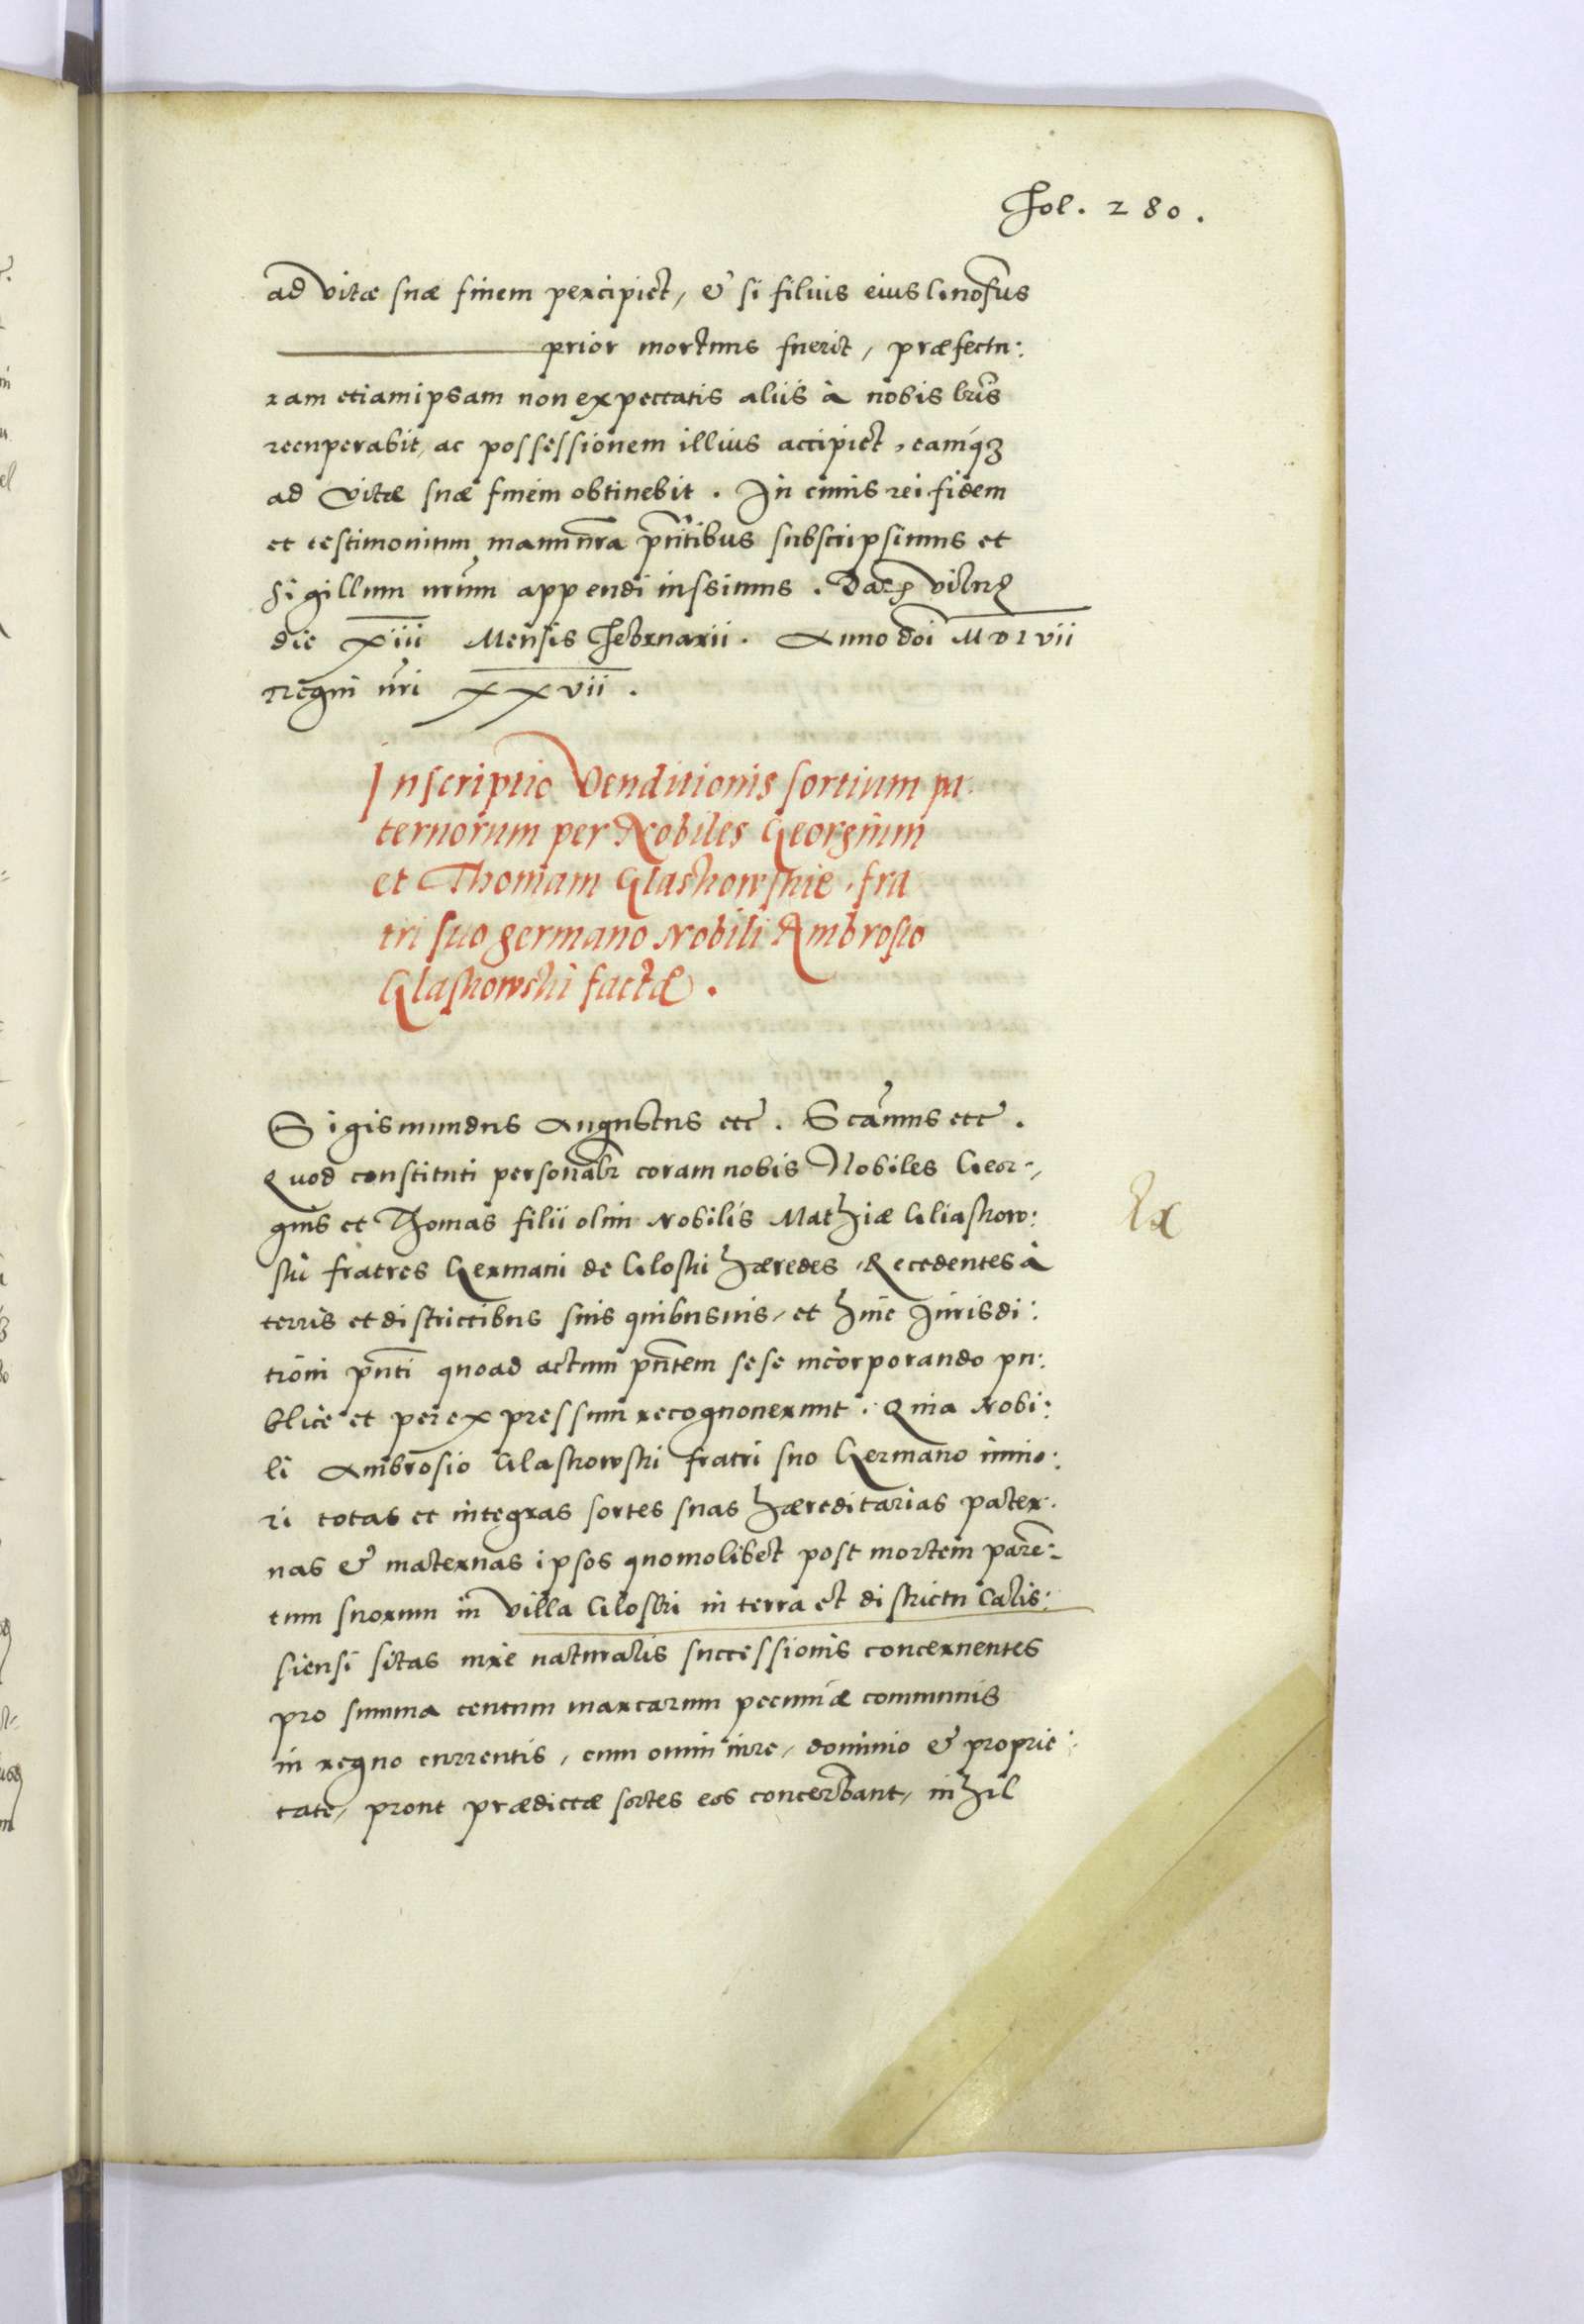 Fol. 280.
ad vitæ suæ finem percipiet, & si filius eius Gnosus
prior mortuus fuerit, præfectu:
ram etiam ipsam non expectatis aliis à nobis lr̃is
recuperabit, ac possessionem illius accipiet, eamq́ꝫ
ad vitæ suæ finem obtinebit. In cuius rei fidem
et testimonium manu nr̃a pñtibus subscripsimus et
sigillum nrũm appendi iussimus. Dat Vilnę
die xiii Mensis Februarii. Anno doi MDLvii
Regni nr̃i xxvii.
Inscriptio Venditionis sortium pa:
ternorum per Nobiles Georgium
et Thomam Glaskowskie, fra
tri suo germano Nobili Ambrosio
Glaskowski factæ.
Sigismundus Augustus etc. Scamus etc.
Quod constituti personalr coram nobis Nobiles Geor:,
gius et Thomas filii olim Nobilis Mathiæ Gliaskow:
ski fratres Germani de Gloski hæredes, Recedentes à
terris et districtibus suis quibusuis, et huic Iurisdi:
tioni pñti quoad actum pñtem sese incorporando pu:
blice et per expressum recognouerunt. Quia Nobi:
li Ambrosio Glaskowski fratri suo Germano iunio:
ri totas et integras sortes suas hæreditarias pater:
nas & maternas ipsos quomolibet post mortem paren:
tum suorum in villa Gloski in terra et districtu Calis:
siensi sitas iure naturalis successionis concernentes
pro summa centum marcarum pecuniæ communis
in regno currentis, cum omni iure, dominio & proprie:
tate, prout prædictæ sortes eos concernebant, nihil
Ex